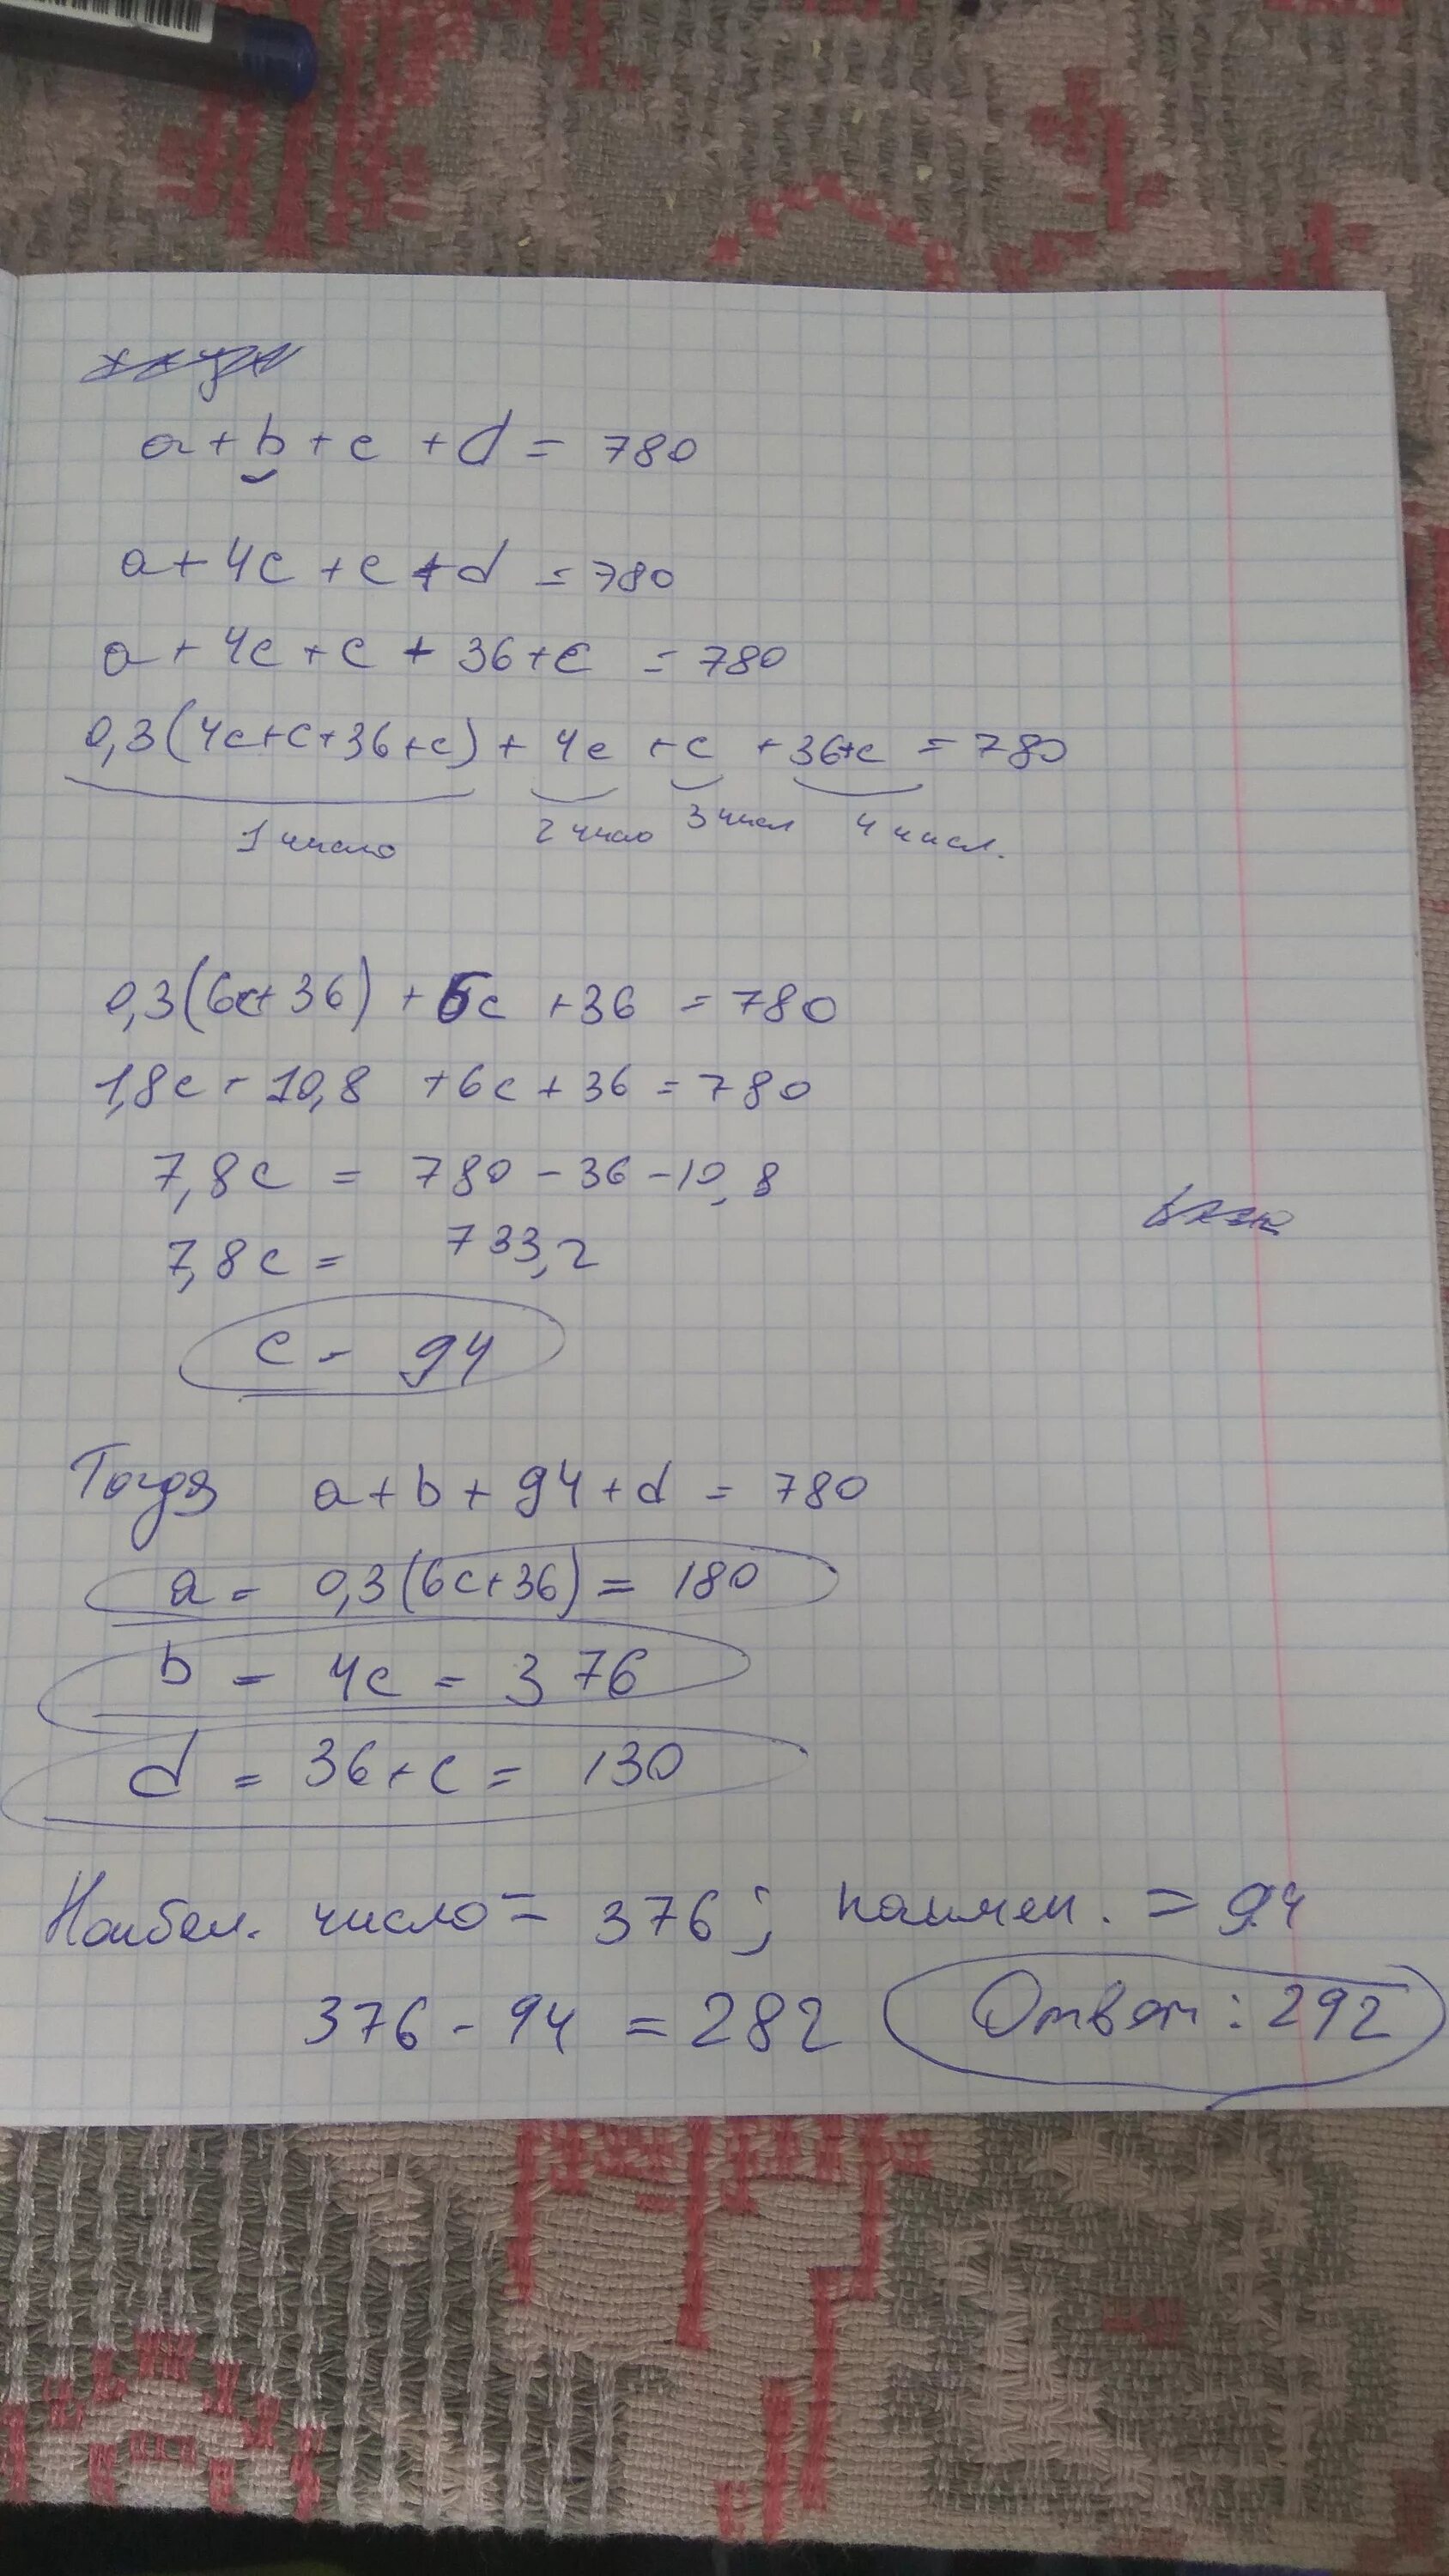 a + b + c + d = 780
a + 4c + c + d = 780
a + 4c + c + 36 + c = 780
0,3(4c+c+36+c) + 4c + c + 36+c = 780
1 число 2 число 3 числ 4 числ.
0,3(6c+36) + 6c + 36 = 780
1,8c + 10,8 + 6c + 36 = 780
7,8c = 780 - 36 - 10,8
7,8c = 733,2
c = 94
Тогда a + b + 94 + d = 780
a = 0,3(6c+36) = 180
b = 4c = 376
d = 36+c = 130
Наибол. число = 376; наимен. = 94
376 - 94 = 282 Ответ: 292